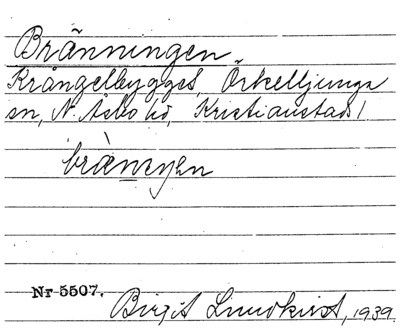 Bränningen
Krångelbygget, Örkelljunga
sn, N. Åsbo hd, Kristianstads l
Nr 5507.
Birgit Lundkvist, 1939